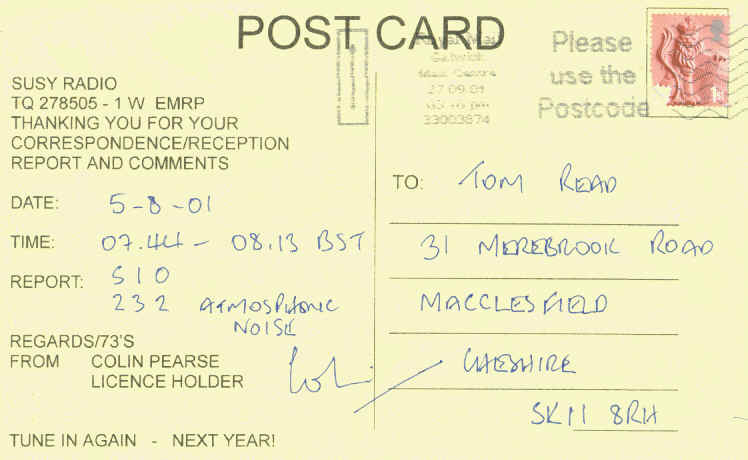 POST CARD
Royal Mail
Gatwick
Mail Centre
27.09.01
33003874
Please
use the
Postcode
1st
SUSY RADIO
TQ 278505 - 1 W EMRP
THANKING YOU FOR YOUR
CORRESPONDENCE/RECEPTION
REPORT AND COMMENTS
DATE: 5-8-01
TIME: 07.44 - 08.13 BST
REPORT: SIO
232 ATMOSPHERIC
NOISE
REGARDS/73'S
FROM COLIN PEARSE
LICENCE HOLDER
Colin
TUNE IN AGAIN - NEXT YEAR!
TO: TOM READ
31 MEREBROOK ROAD
MACCLESFIELD
CHESHIRE
SK11 8RH